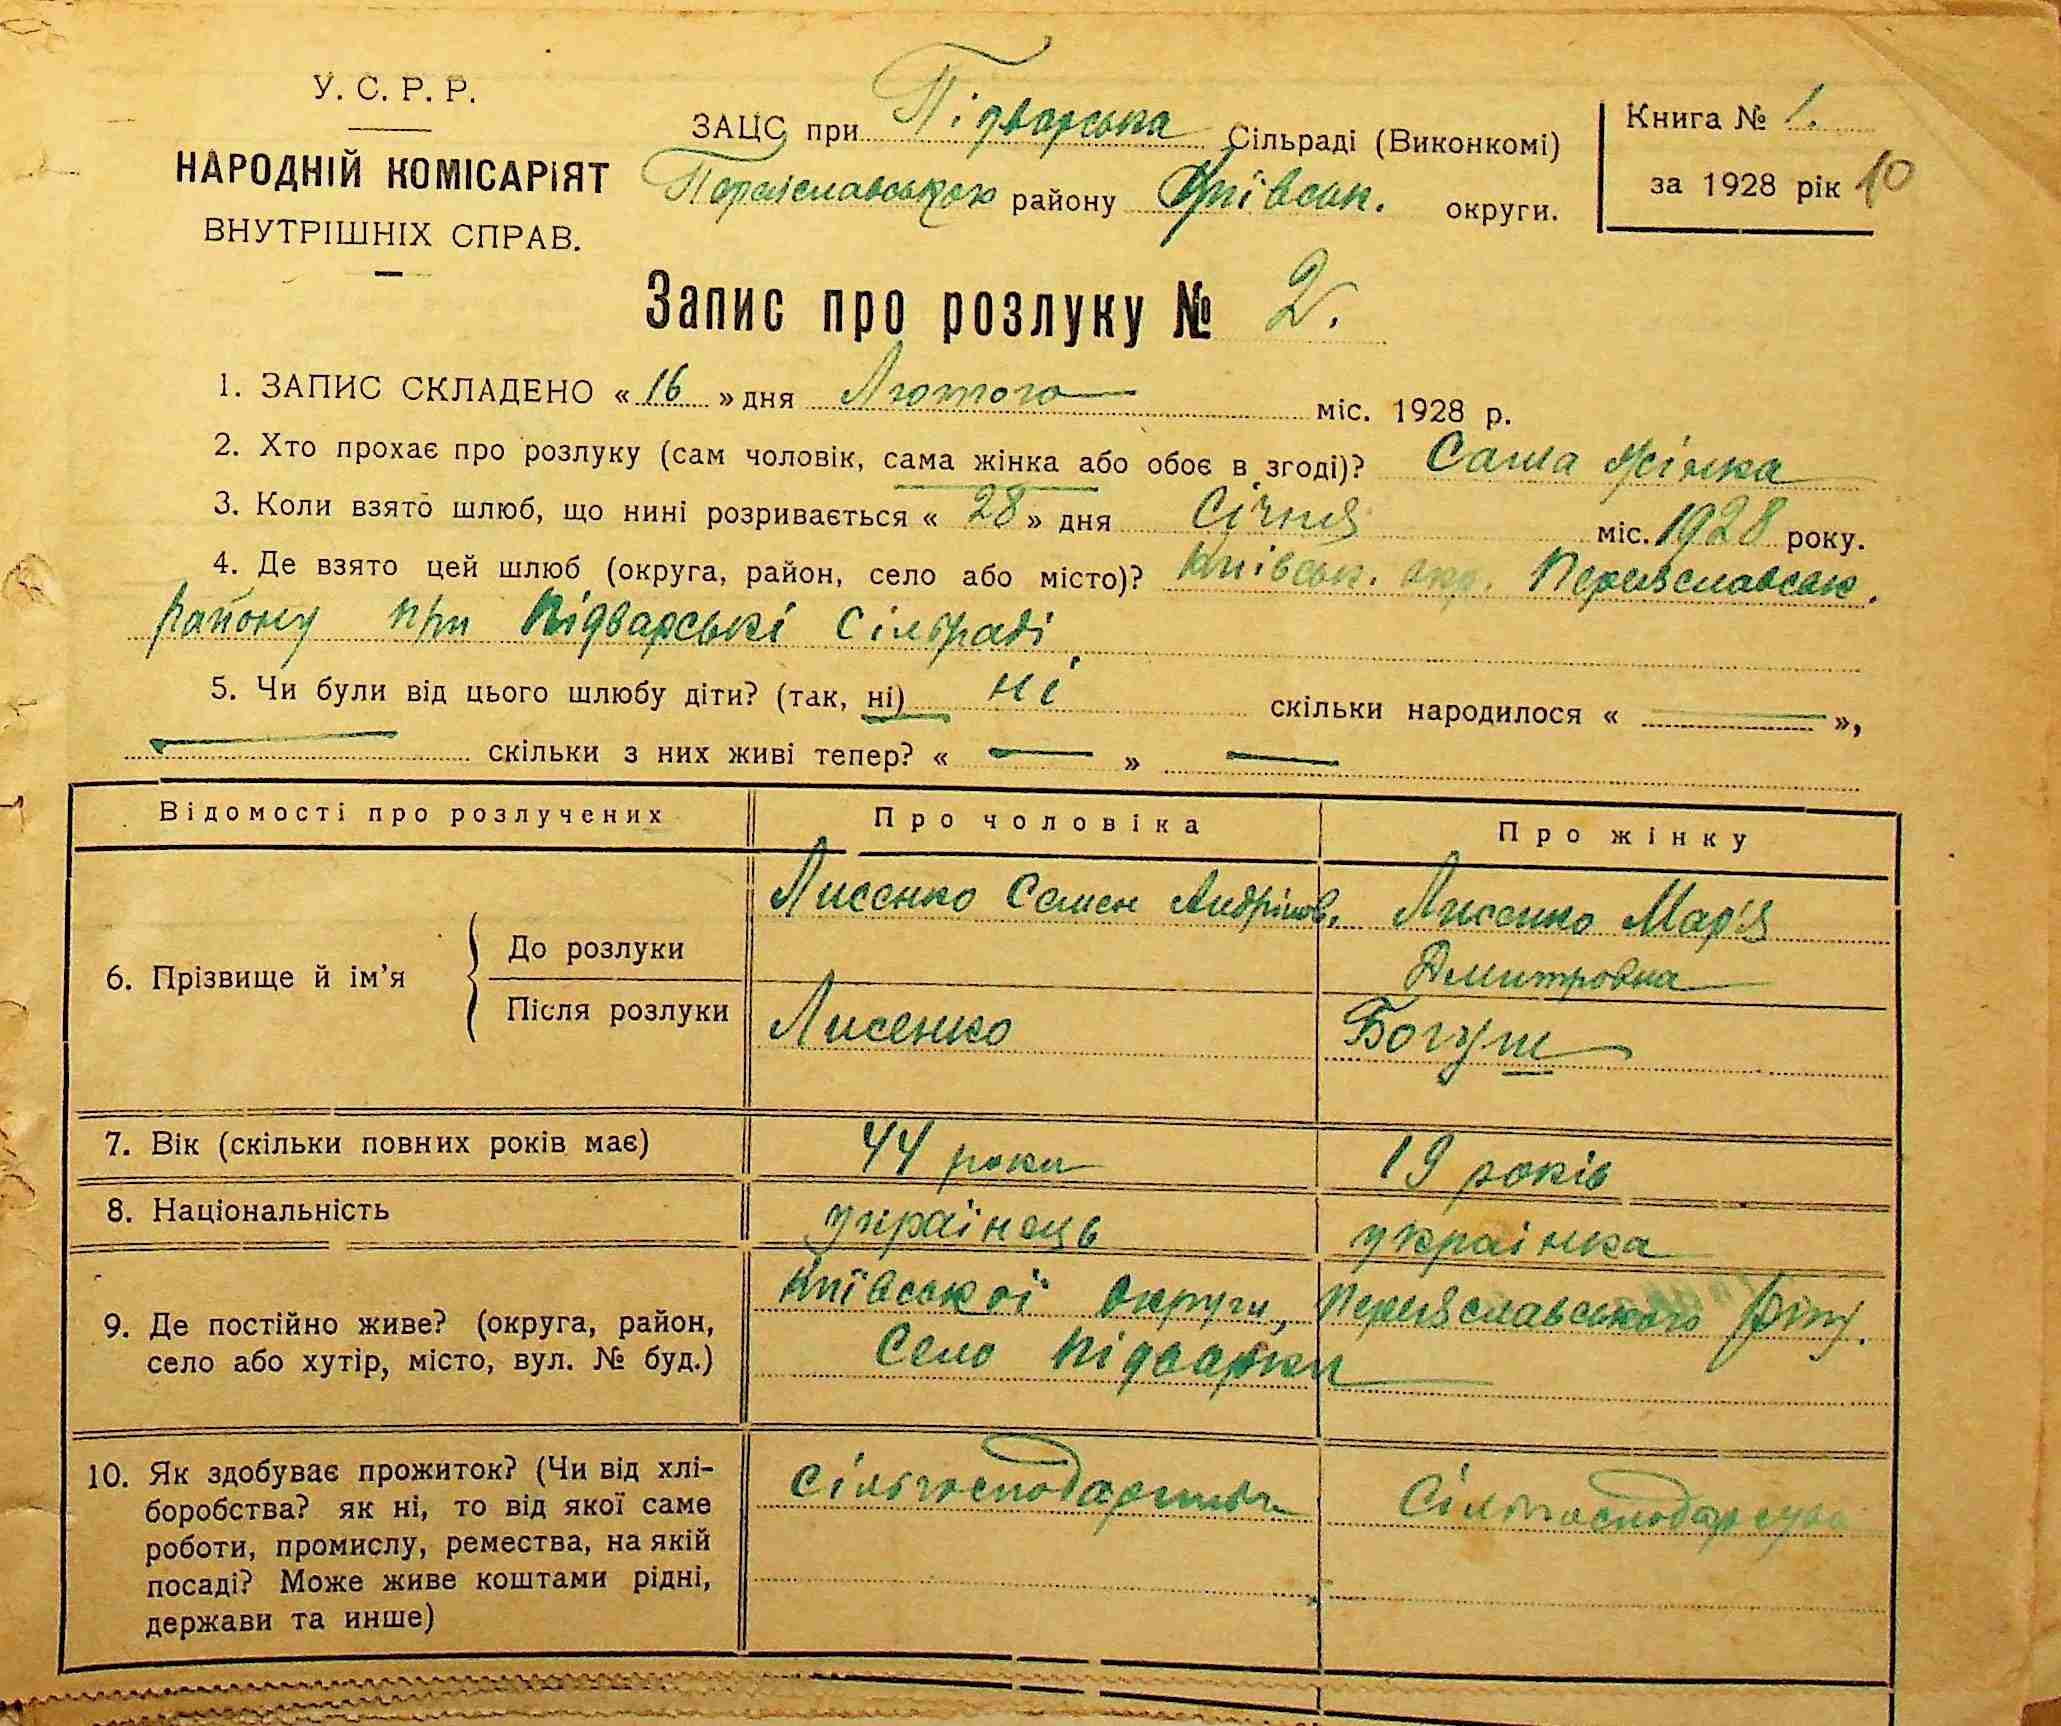 У. С. Р. Р.
НАРОДНІЙ КОМІСАРІЯТ
ВНУТРІШНІХ СПРАВ.
ЗАЦС при Підварська Сільраді (Виконкомі)
Переяславського району Київськ. округи.
Книга № 1.
за 1928 рік 10
Запис про розлуку № 2.
1. ЗАПИС СКЛАДЕНО « 16 » дня Лютого міс. 1928 р.
2. Хто прохає про розлуку (сам чоловік, сама жінка або обоє в згоді)? Сама жінка
3. Коли взято шлюб, що нині розривається « 28 » дня Січня міс. 1928 року.
4. Де взято цей шлюб (округа, район, село або місто)? Київськ. окр. Переяславськ.
району при Підварські Сільраді.
5. Чи були від цього шлюбу діти? (так, ні) ні скільки народилося « — »,
— скільки з них живі тепер? « — » —
Відомості про розлучених Про чоловіка Про жінку
6. Прізвище й ім'я
До розлуки
Лисенко Семен Андріиов. Лисенко Мар'я
Дмитровна
Після розлуки Лисенко Богуш
7. Вік (скільки повних років має) 44 роки 19 років
8. Національність українець українка
9. Де постійно живе? (округа, район,
село або хутір, місто, вул. № буд.)
Київської округи, Переяславського р-ну.
Село Підварки
10. Як здобуває прожиток? (Чи від хлі-
боробства? як ні, то від якої саме
роботи, промислу, ремества, на якій
посаді? Може живе коштами рідні,
держави та инше)